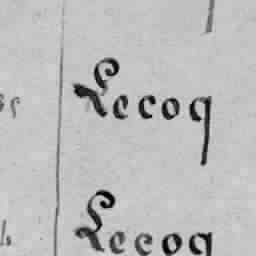 Lecoq
Lecoq